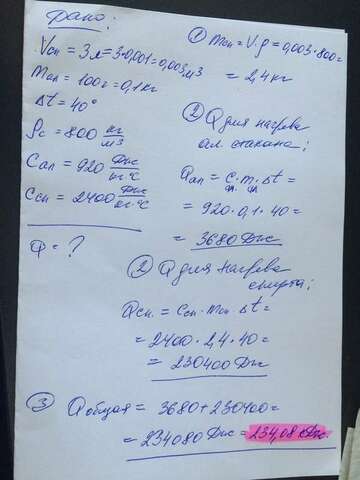 Дано:
Vсп = 3л = 3·0,001 = 0,003 м³
mал = 100г = 0,1 кг
Δt = 40°
ρс = 800 кг/м³
Cал = 920 Дж/кг·°C
Cсп = 2400 Дж/кг·°C
Q = ?
① mсп = V·ρ = 0,003·800 =
= 2,4 кг
② Q для нагрева
ал. стакана:
Qал = Cал·mал·Δt =
= 920·0,1·40 =
= 3680 Дж
② Q для нагрева
спирта:
Qсп. = Cсп·mсп·Δt =
= 2400·2,4·40 =
= 230400 Дж
③ Qобщая = 3680 + 230400 =
= 234080 Дж = 234,08 Дж.